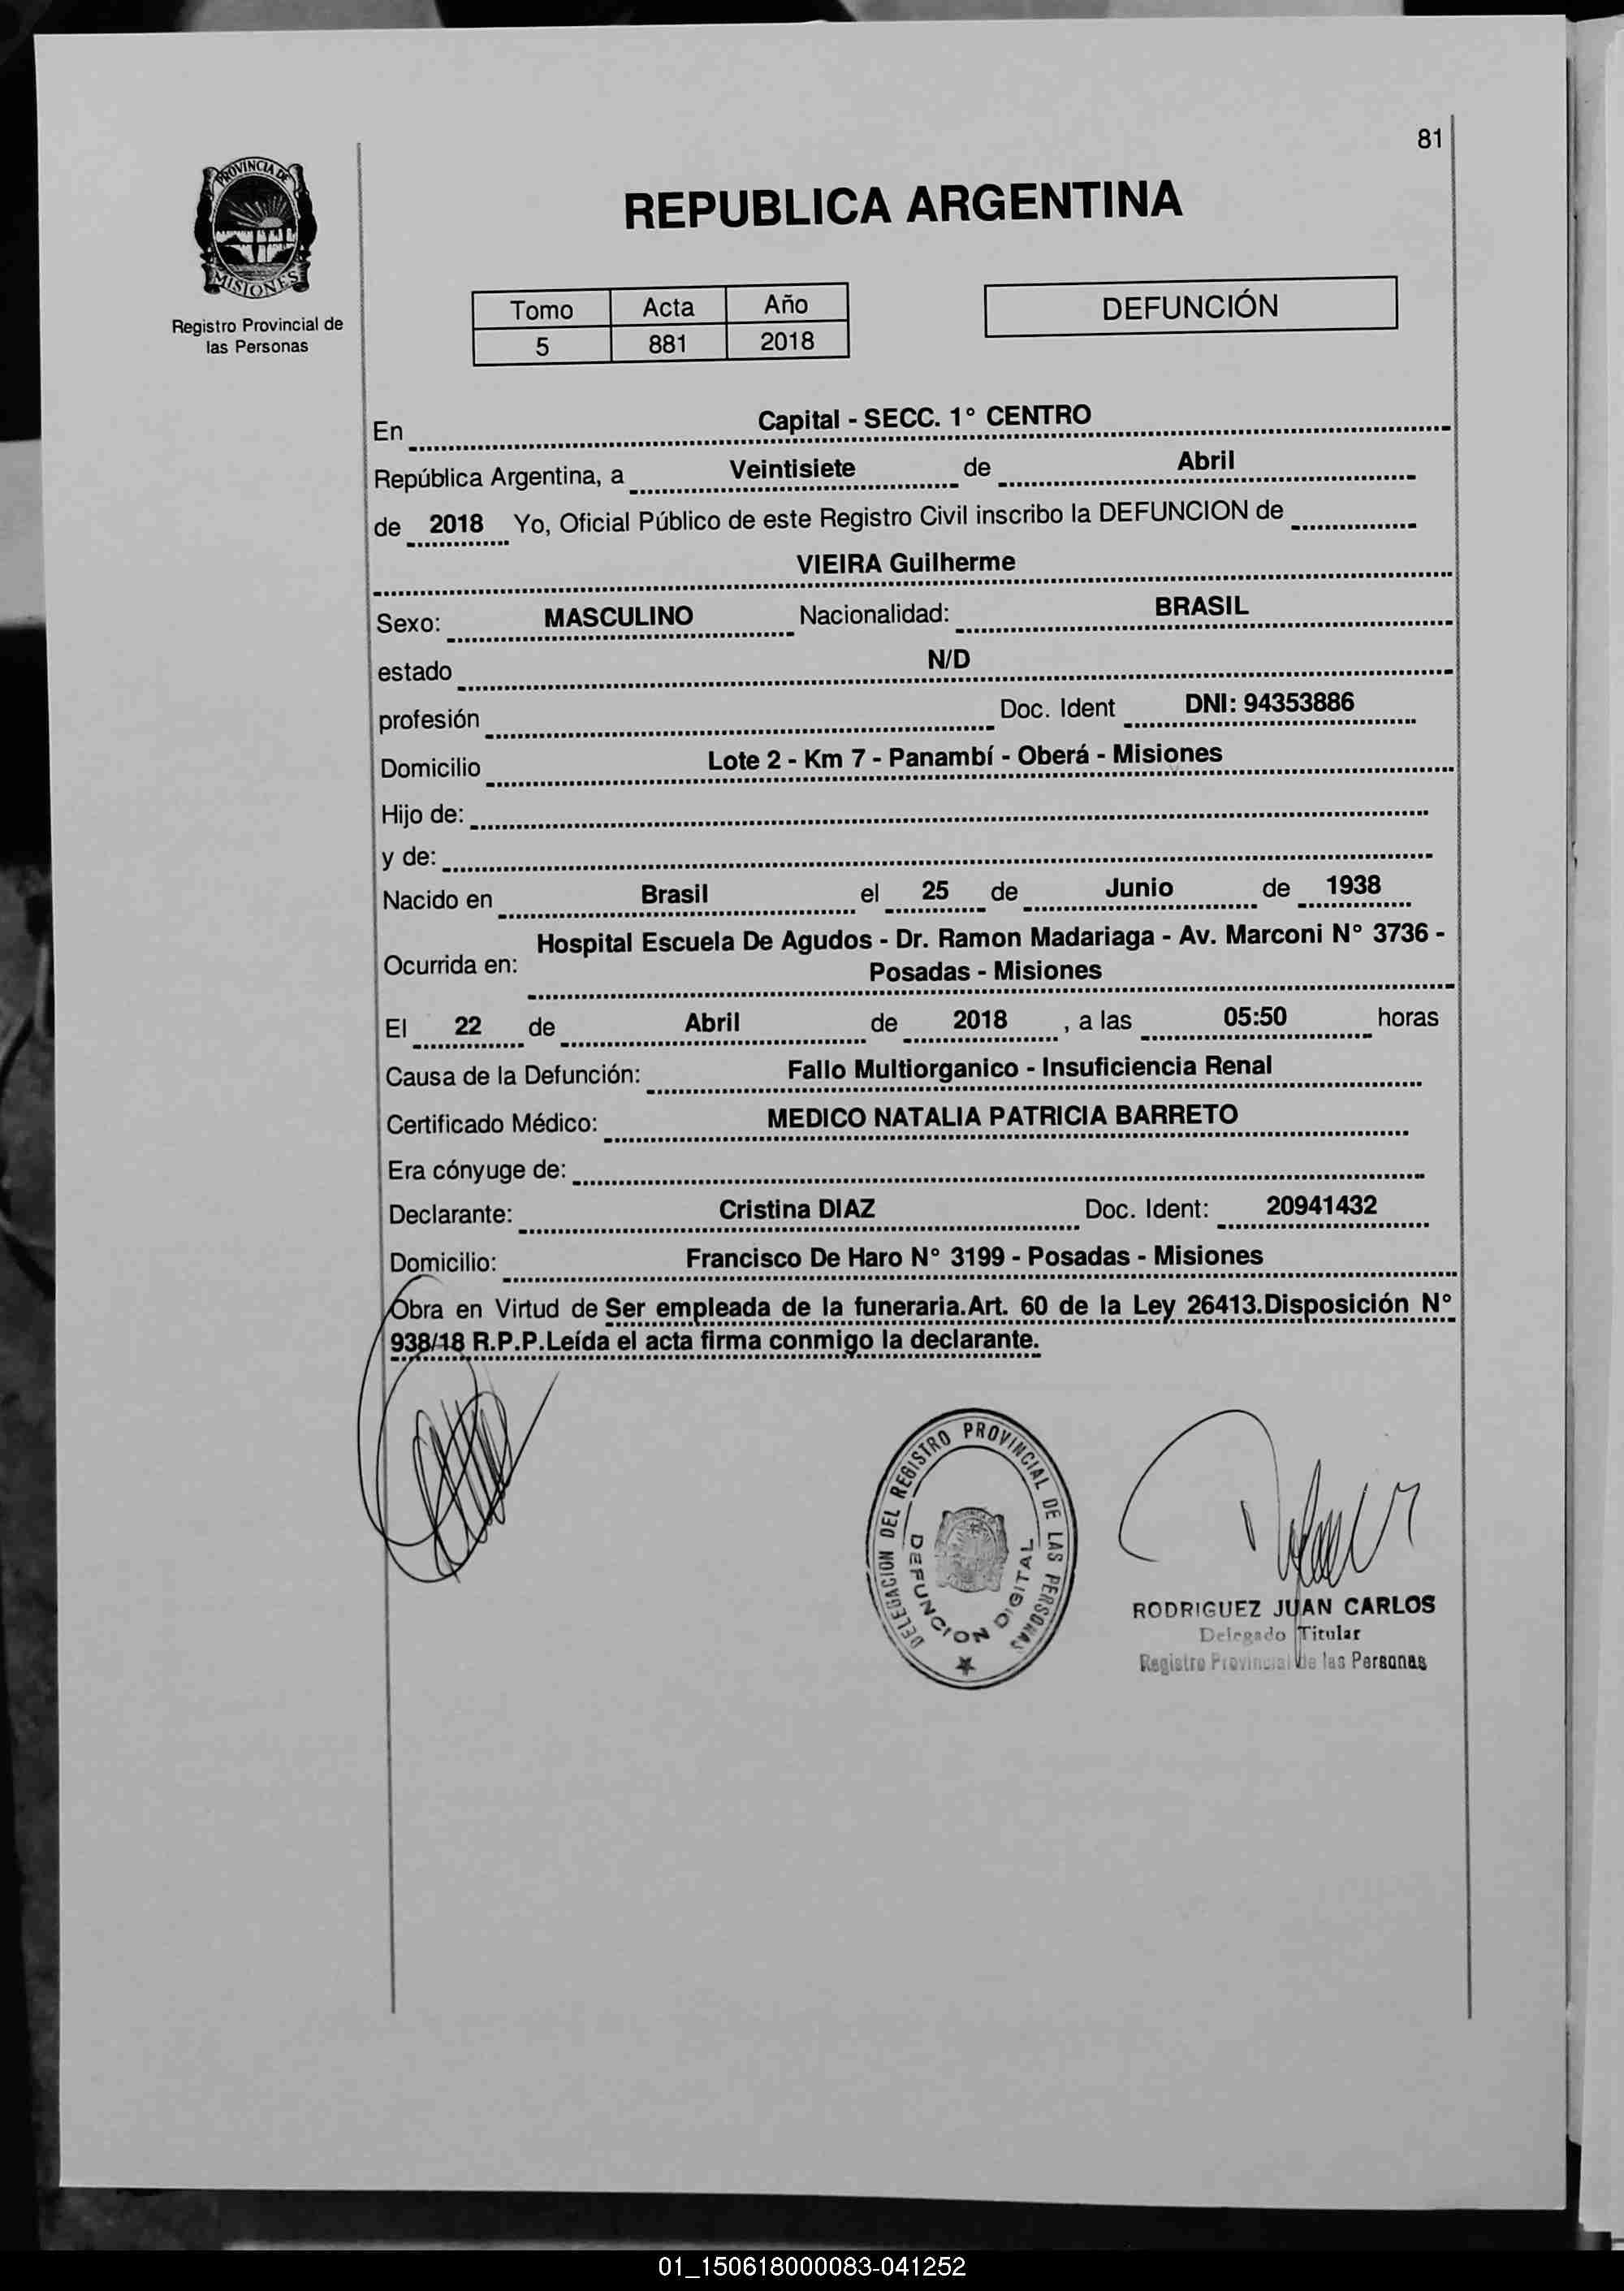 81
PROVINCIA DE
MISIONES
Registro Provincial de
las Personas
REPUBLICA ARGENTINA
Tomo Acta Año
5 881 2018
DEFUNCIÓN
En Capital - SECC. 1° CENTRO
República Argentina, a Veintisiete de Abril
de 2018 Yo, Oficial Público de este Registro Civil inscribo la DEFUNCION de
VIEIRA Guilherme
Sexo: MASCULINO Nacionalidad: BRASIL
estado N/D
profesión Doc. Ident DNI: 94353886
Domicilio Lote 2 - Km 7 - Panambí - Oberá - Misiones
Hijo de:
y de:
Nacido en Brasil el 25 de Junio de 1938
Hospital Escuela De Agudos - Dr. Ramon Madariaga - Av. Marconi N° 3736 -
Ocurrida en: Posadas - Misiones
El 22 de Abril de 2018 , a las 05:50 horas
Causa de la Defunción: Fallo Multiorganico - Insuficiencia Renal
Certificado Médico: MEDICO NATALIA PATRICIA BARRETO
Era cónyuge de:
Declarante: Cristina DIAZ Doc. Ident: 20941432
Domicilio: Francisco De Haro N° 3199 - Posadas - Misiones
Obra en Virtud de Ser empleada de la funeraria.Art. 60 de la Ley 26413.Disposición N°
938/18 R.P.P.Leída el acta firma conmigo la declarante.
DELEGACION DEL REGISTRO PROVINCIAL DE LAS PERSONAS
DEFUNCION DIGITAL
RODRIGUEZ JUAN CARLOS
Delegado Titular
Registro Provincial de las Personas
01_150618000083-041252